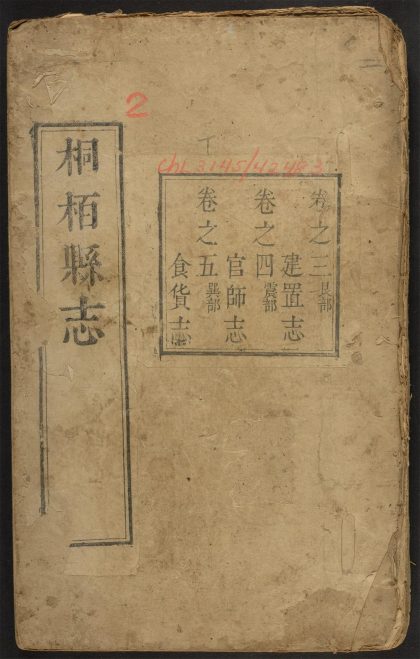 桐栢縣志
2
Chi 3145/4248.3
卷之三艮部
建置志
卷之四震部
官師志
卷之五巽部
食貨志